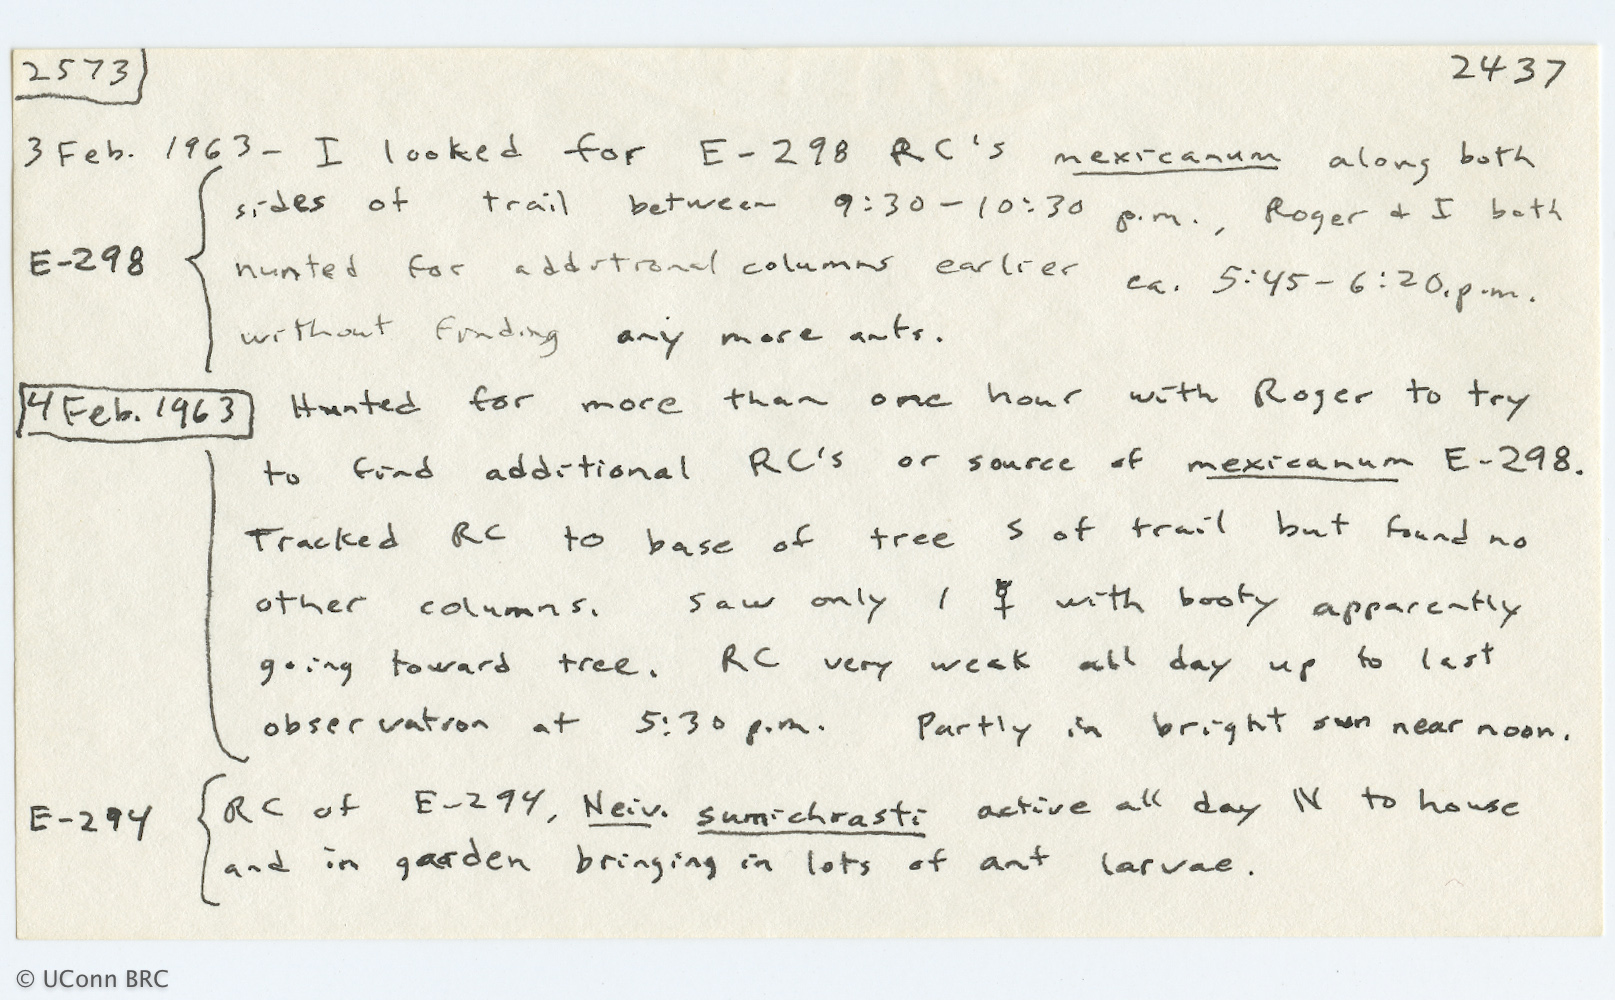 2573 2437
3 Feb. 1963 - I looked for E-298 RC's mexicanum along both
sides of trail between 9:30-10:30 p.m., Roger & I both
E-298 hunted for additional columns earlier ca. 5:45-6:20 p.m.
without finding any more ants.
4 Feb. 1963 Hunted for more than one hour with Roger to try
to find additional RC's or source of mexicanum E-298.
Tracked RC to base of tree S of trail but found no
other columns. Saw only 1 ☿ with booty apparently
going toward tree. RC very weak all day up to last
observation at 5:30 p.m. Partly in bright sun near noon.
E-294 RC of E-294, Neiv. sumichrasti active all day N to house
and in garden bringing in lots of ant larvae.
© UConn BRC